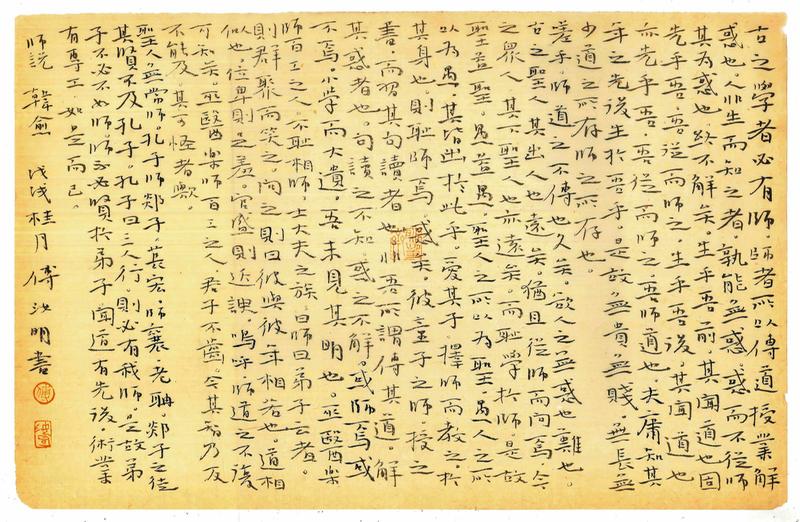 古之學者必有師師者所以傳道授業解
惑也。人非生而知之者孰能無惑惑而不從師
其為惑也終不解矣。生乎吾前其聞道也固
先乎吾吾從而師之。生乎吾後其聞道也
亦先乎吾吾從而師之吾師道也夫庸知其
年之先後生於吾乎。是故無貴無賤無長無
少道之所存師之所存也。
嗟乎。師道之不傳也久矣。欲人之無惑也難也。
古之聖人其出人也遠矣。猶且從師而問焉今
之眾人其下聖人也亦遠矣。而恥學於師是故
聖益聖。愚益愚。聖人之所以為聖愚人之所
以為愚其皆出於此乎。愛其子擇師而教之於
其身也則恥師焉惑矣。彼童子之師授之
書而習其句讀者也非吾所謂傳其道解
其惑者也。句讀之不知惑之不解。或師焉或
不焉。小學而大遺。吾未見其明也。巫醫樂
師百工之人不恥相師。士大夫之族曰師曰弟子云者。
則群聚而笑之。問之則曰彼與彼年相若也。道相
似也。位卑則足羞。官盛則近諛。嗚呼師道之不復
可知矣。巫醫樂師百工之人君子不齒。今其智乃反
不能及其可怪者歟。
聖人無常師。孔子師郯子萇宏師襄老聃。郯子之徒
其賢不及孔子。孔子曰三人行則必有我師。是故弟
子不必不如師師不必賢於弟子聞道有先後術業
有專工如是而已。
師說 韓愈 戊戌桂月 傅汝明書